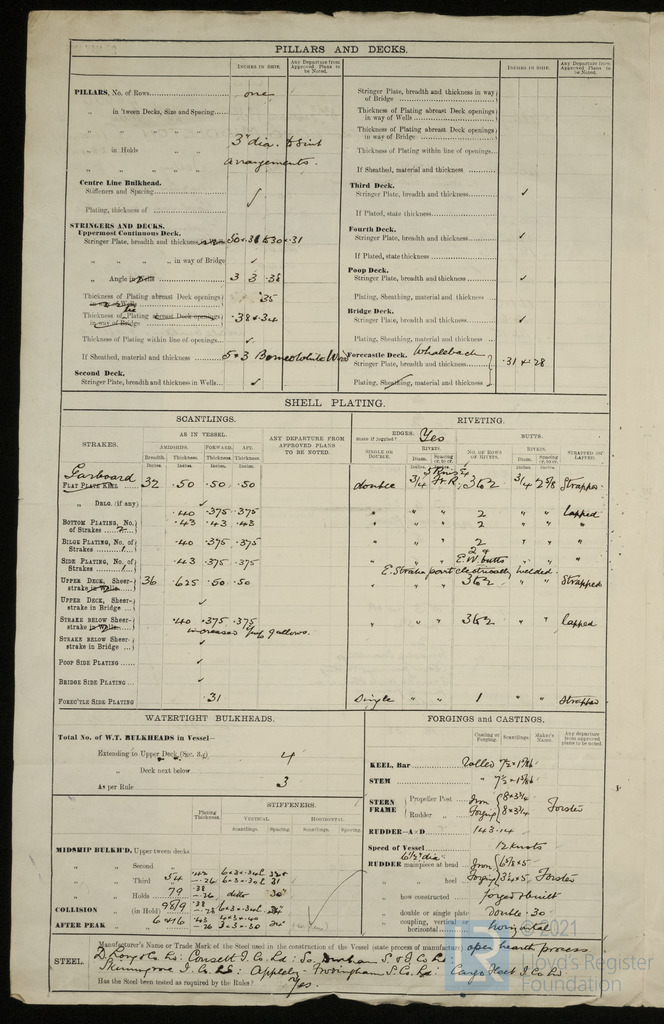 PILLARS AND DECKS.
INCHES IN SHIP.
Any Departure from Approved Plans to be Noted.
PILLARS, No. of Rows one
„ in 'tween Decks, Size and Spacing
„ „ „ „
„ in Holds „ „ 3" dia. to suit
„ „ „ „ arrangements.
Centre Line Bulkhead.
Stiffeners and Spacing ✓
Plating, thickness of
STRINGERS AND DECKS.
Uppermost Continuous Deck.
Stringer Plate, breadth and thickness
„ „ „ „ in way of Bridge ✓
„ Angle in Wells 3 3 .38
Thickness of Plating abreast Deck openings in way of Wells .35
Thickness of Plating abreast Deck openings in way of Bridge .38 & .34
Thickness of Plating within line of openings ✓
If Sheathed, material and thickness 5 x 3 Borneo White Wood
Second Deck.
Stringer Plate, breadth and thickness in Wells ✓
INCHES IN SHIP.
Any Departure from Approved Plans to be Noted.
Stringer Plate, breadth and thickness in way of Bridge
Thickness of Plating abreast Deck openings in way of Wells
Thickness of Plating abreast Deck openings in way of Bridge
Thickness of Plating within line of openings
If Sheathed, material and thickness
Third Deck.
Stringer Plate, breadth and thickness ✓
If Plated, state thickness
Fourth Deck.
Stringer Plate, breadth and thickness ✓
If Plated, state thickness
Poop Deck.
Stringer Plate, breadth and thickness ✓
Plating, Sheathing, material and thickness
Bridge Deck.
Stringer Plate, breadth and thickness ✓
Plating, Sheathing, material and thickness
Forecastle Deck. Whaleback
Stringer Plate, breadth and thickness .31 & .28
Plating, Sheathing, material and thickness
SHELL PLATING.
SCANTLINGS.
RIVETING.
STRAKES.
AS IN VESSEL.
AMIDSHIPS. FORWARD. AFT.
Breadth. Thickness. Thickness. Thickness.
Inches Inches. Inches. Inches.
ANY DEPARTURE FROM APPROVED PLANS TO BE NOTED.
EDGES. State if joggled? Yes
BUTTS.
SINGLE OR DOUBLE.
RIVETS.
Diam. Spacing cr. to cr.
NO. OF ROWS OF RIVETS.
RIVETS.
Diam. Spacing cr. to cr.
STRAPPED OR LAPPED.
Garboard
FLAT PLATE KEEL 32 .50 .50 .50 double 3/4 3 & 2 3/4 2 5/8 Strapped
„ DBLG. (if any) ✓
.40 .375 .375 „ „ „ 2 „ „ lapped
BOTTOM PLATING, No. of Strakes 2 .43 .43 .43 „ „ „ 2 „ „ „
BILGE PLATING, No. of Strakes 1 .40 .375 .375 „ „ „ 2 „ „ „
SIDE PLATING, No. of Strakes 1 .43 .375 .375 „ „ „ 2 & E.W. butts
E. Strake part electrically welded.
UPPER DECK, Sheer-strake in Wells 36 .625 .50 .50 „ „ „ 3 & 2 „ „ Strapped
UPPER DECK, Sheer-strake in Bridge ✓
STRAKE BELOW Sheer-strake in Wells .40 .375 .375 „ „ „ 3 & 2 „ „ lapped
increases gallows.
STRAKE BELOW Sheer-strake in Bridge ✓
POOP SIDE PLATING ✓
BRIDGE SIDE PLATING ✓
FOREC'TLE SIDE PLATING .31 Single „ „ 1 „ „ Strapped
WATERTIGHT BULKHEADS.
Total No. of W.T. BULKHEADS in Vessel—
Extending to Upper Deck (Sec. 3.) 4
„ Deck next below
As per Rule 3
Plating Thickness.
STIFFENERS.
VERTICAL. HORIZONTAL.
Scantlings. Spacing. Scantlings. Spacing.
MIDSHIP BULKH'D, Upper tween decks
„ Second „
„ Third „ 54
„ Holds 79 .38 .26 ditto 30"
COLLISION „ (in Hold) 98/9 .38
AFTER PEAK „ „
FORGINGS and CASTINGS.
Casting or Forging. Scantlings. Maker's Name. Any departure from approved plans to be noted.
KEEL, Bar Rolled
STEM „
STERN FRAME
Propeller Post Iron 8 x 3 3/4
Rudder „ Forging 8 x 3 3/4 Forster
RUDDER—A x D 143.14
Speed of Vessel 12 knots
6 1/2" dia
RUDDER mainpiece at head Iron
„ „ heel Forging Forster
„ how constructed forged & built
„ double or single plate double .30
„ coupling, vertical or horizontal horizontal
STEEL.
Manufacturer's Name or Trade Mark of the Steel used in the construction of the Vessel (state process of manufacture) open hearth process
Consett I. Co. Ld: So. Durham S. & I. Co Ld:
Skinningrove I. Co Ld: Appleby-Frodingham S. Co. Ld: Cargo Fleet I. Co Ld
Has the Steel been tested as required by the Rules? Yes.
© 2021
Lloyd's Register
Foundation